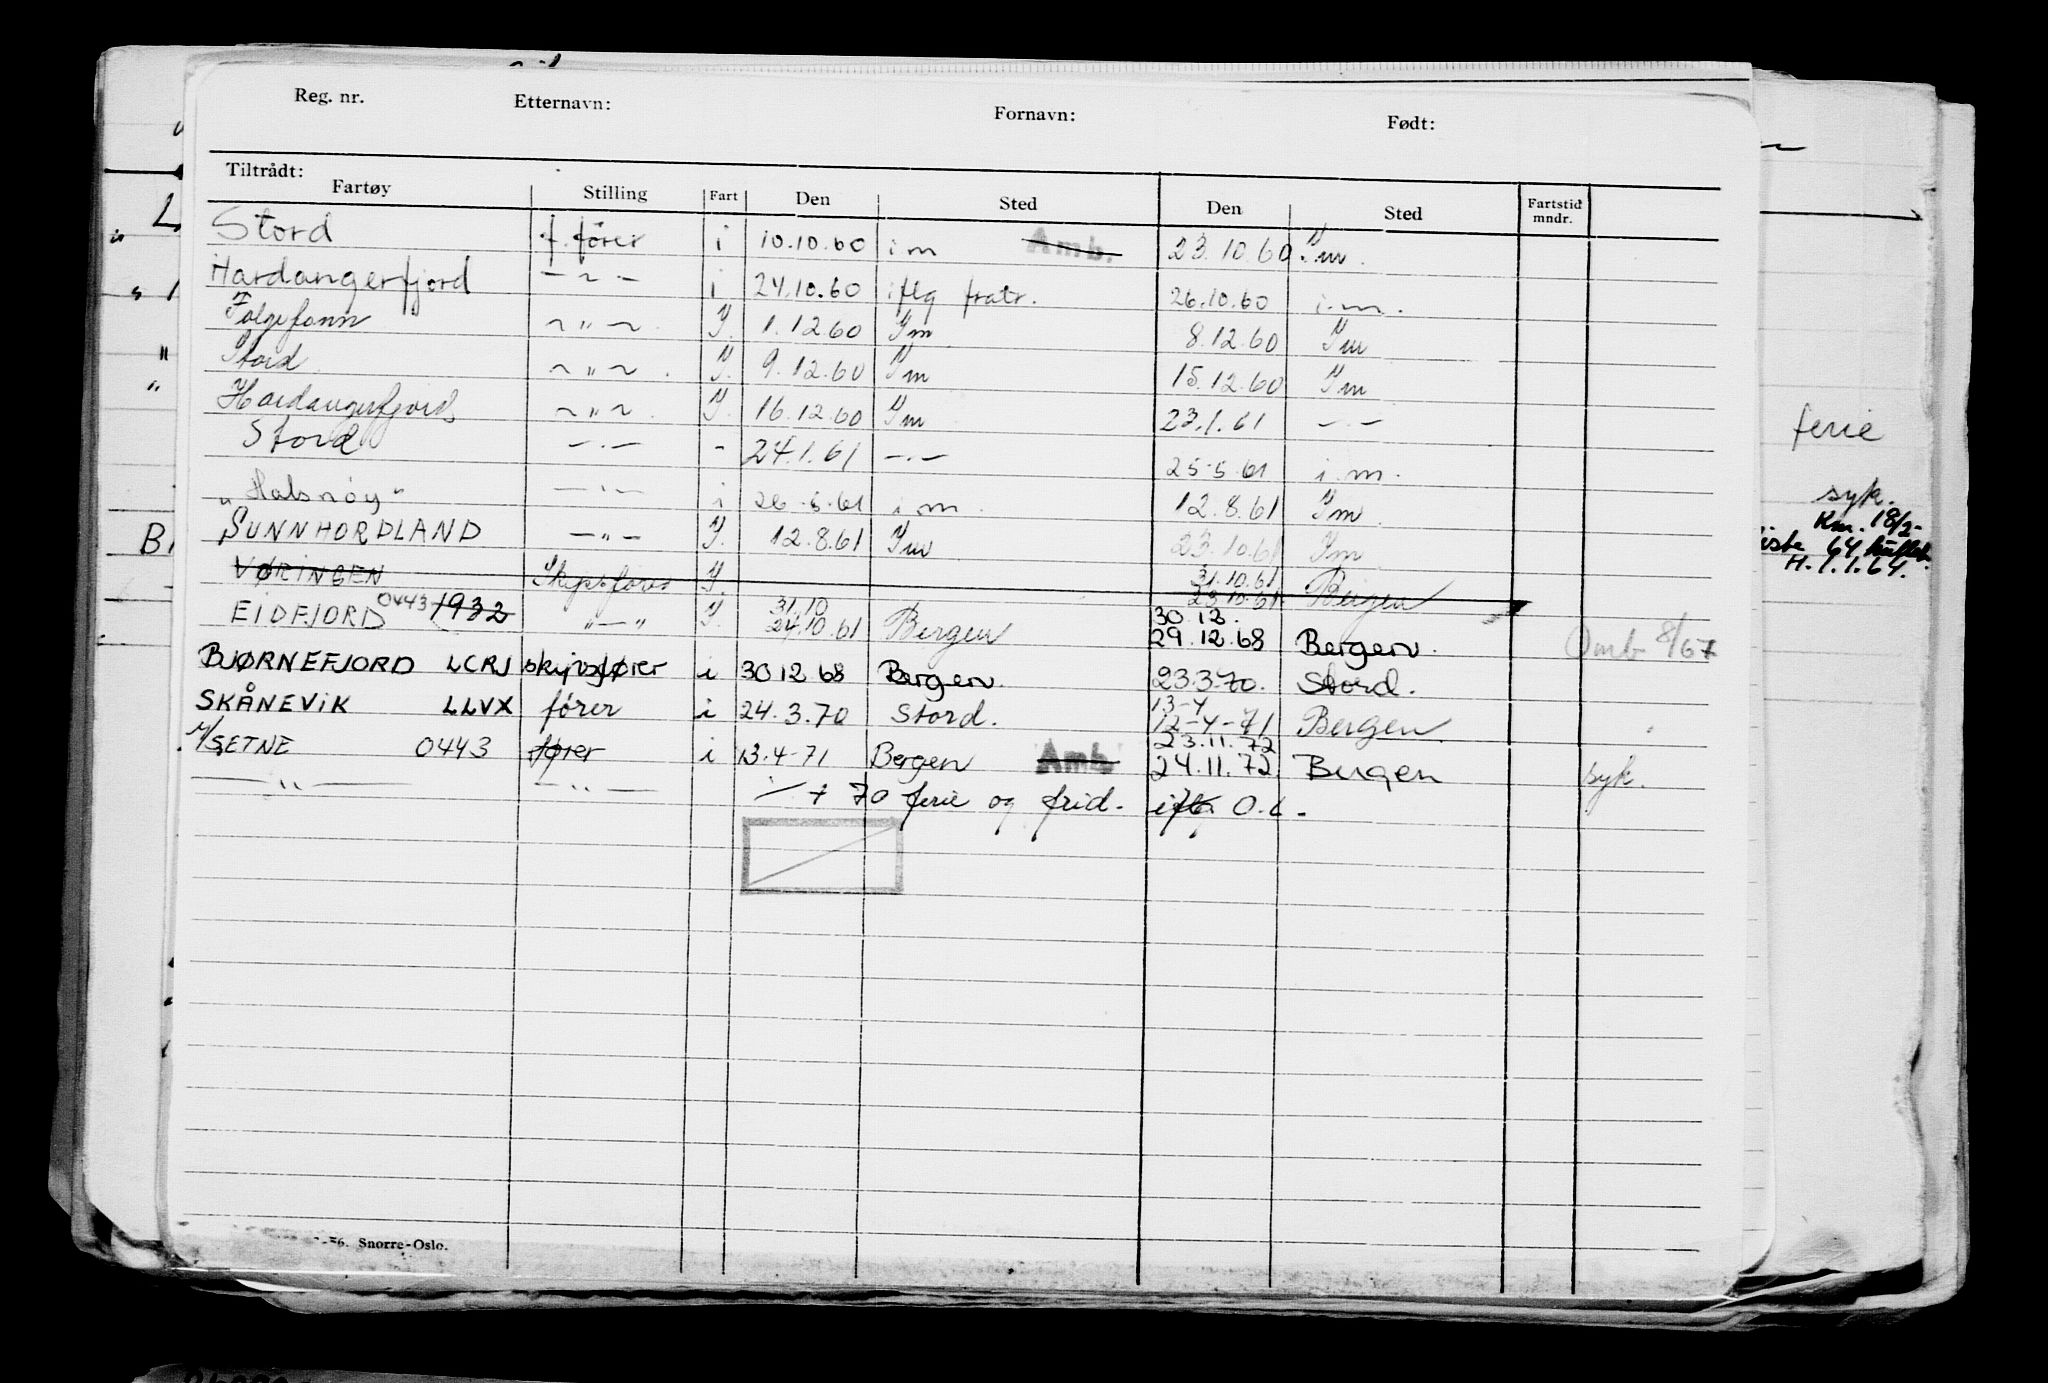 Reg. nr. Etternavn: Fornavn: Født:
Tiltrådt:
Fartøy Stilling Fart Den Sted Den Sted Fartstid mndr.
Stord f. fører i 10.10.60 i m Amb. 23.10.60 Im.
Hardangerfjord — ~ — i 24.10.60 iflg fratr. 26.10.60 i.m.
Folgefonn ~ " ~ I. 1.12.60 Im 8.12.60 Im
Stord ~ " ~ I. 9.12.60 Im 15.12.60 Im
Hardangerfjord ~ " ~ I. 16.12.60 Im 23.1.61 — " —
Stord — " — - 24.1.61 — " — 25-5.61 i.m.
"Halsnøy" — " — i 26-5.61 i m. 12.8.61 Im
SUNNHORDLAND — " — I. 12.8.61 Im 23.10.61 Im
VØRINGEN Skipsfører I. 31.10.61 23.10.61 Bergen
EIDFJORD 0443 1932 " — " I. 31.10 24.10.61 Bergen 30.12. 29.12.68 Bergen. Omb 8/67
BJØRNEFJORD LCRJ skipsfører i 30 12 68 Bergen. 23.3.70. Stord.
SKÅNEVIK LLVX fører i 24.3.70 Stord. 13-4 12-4-71 Bergen
M/S ETNE 0443 fører i 13.4-71 Bergen Amb 23.11.72 24.11.72 Bergen syk.
— " — — " — + 70 ferie og frid. iflg. O.L.
ferie
syk.
Km. 18/2-
64
H. 1.1.64.
-56. Snorre-Oslo.